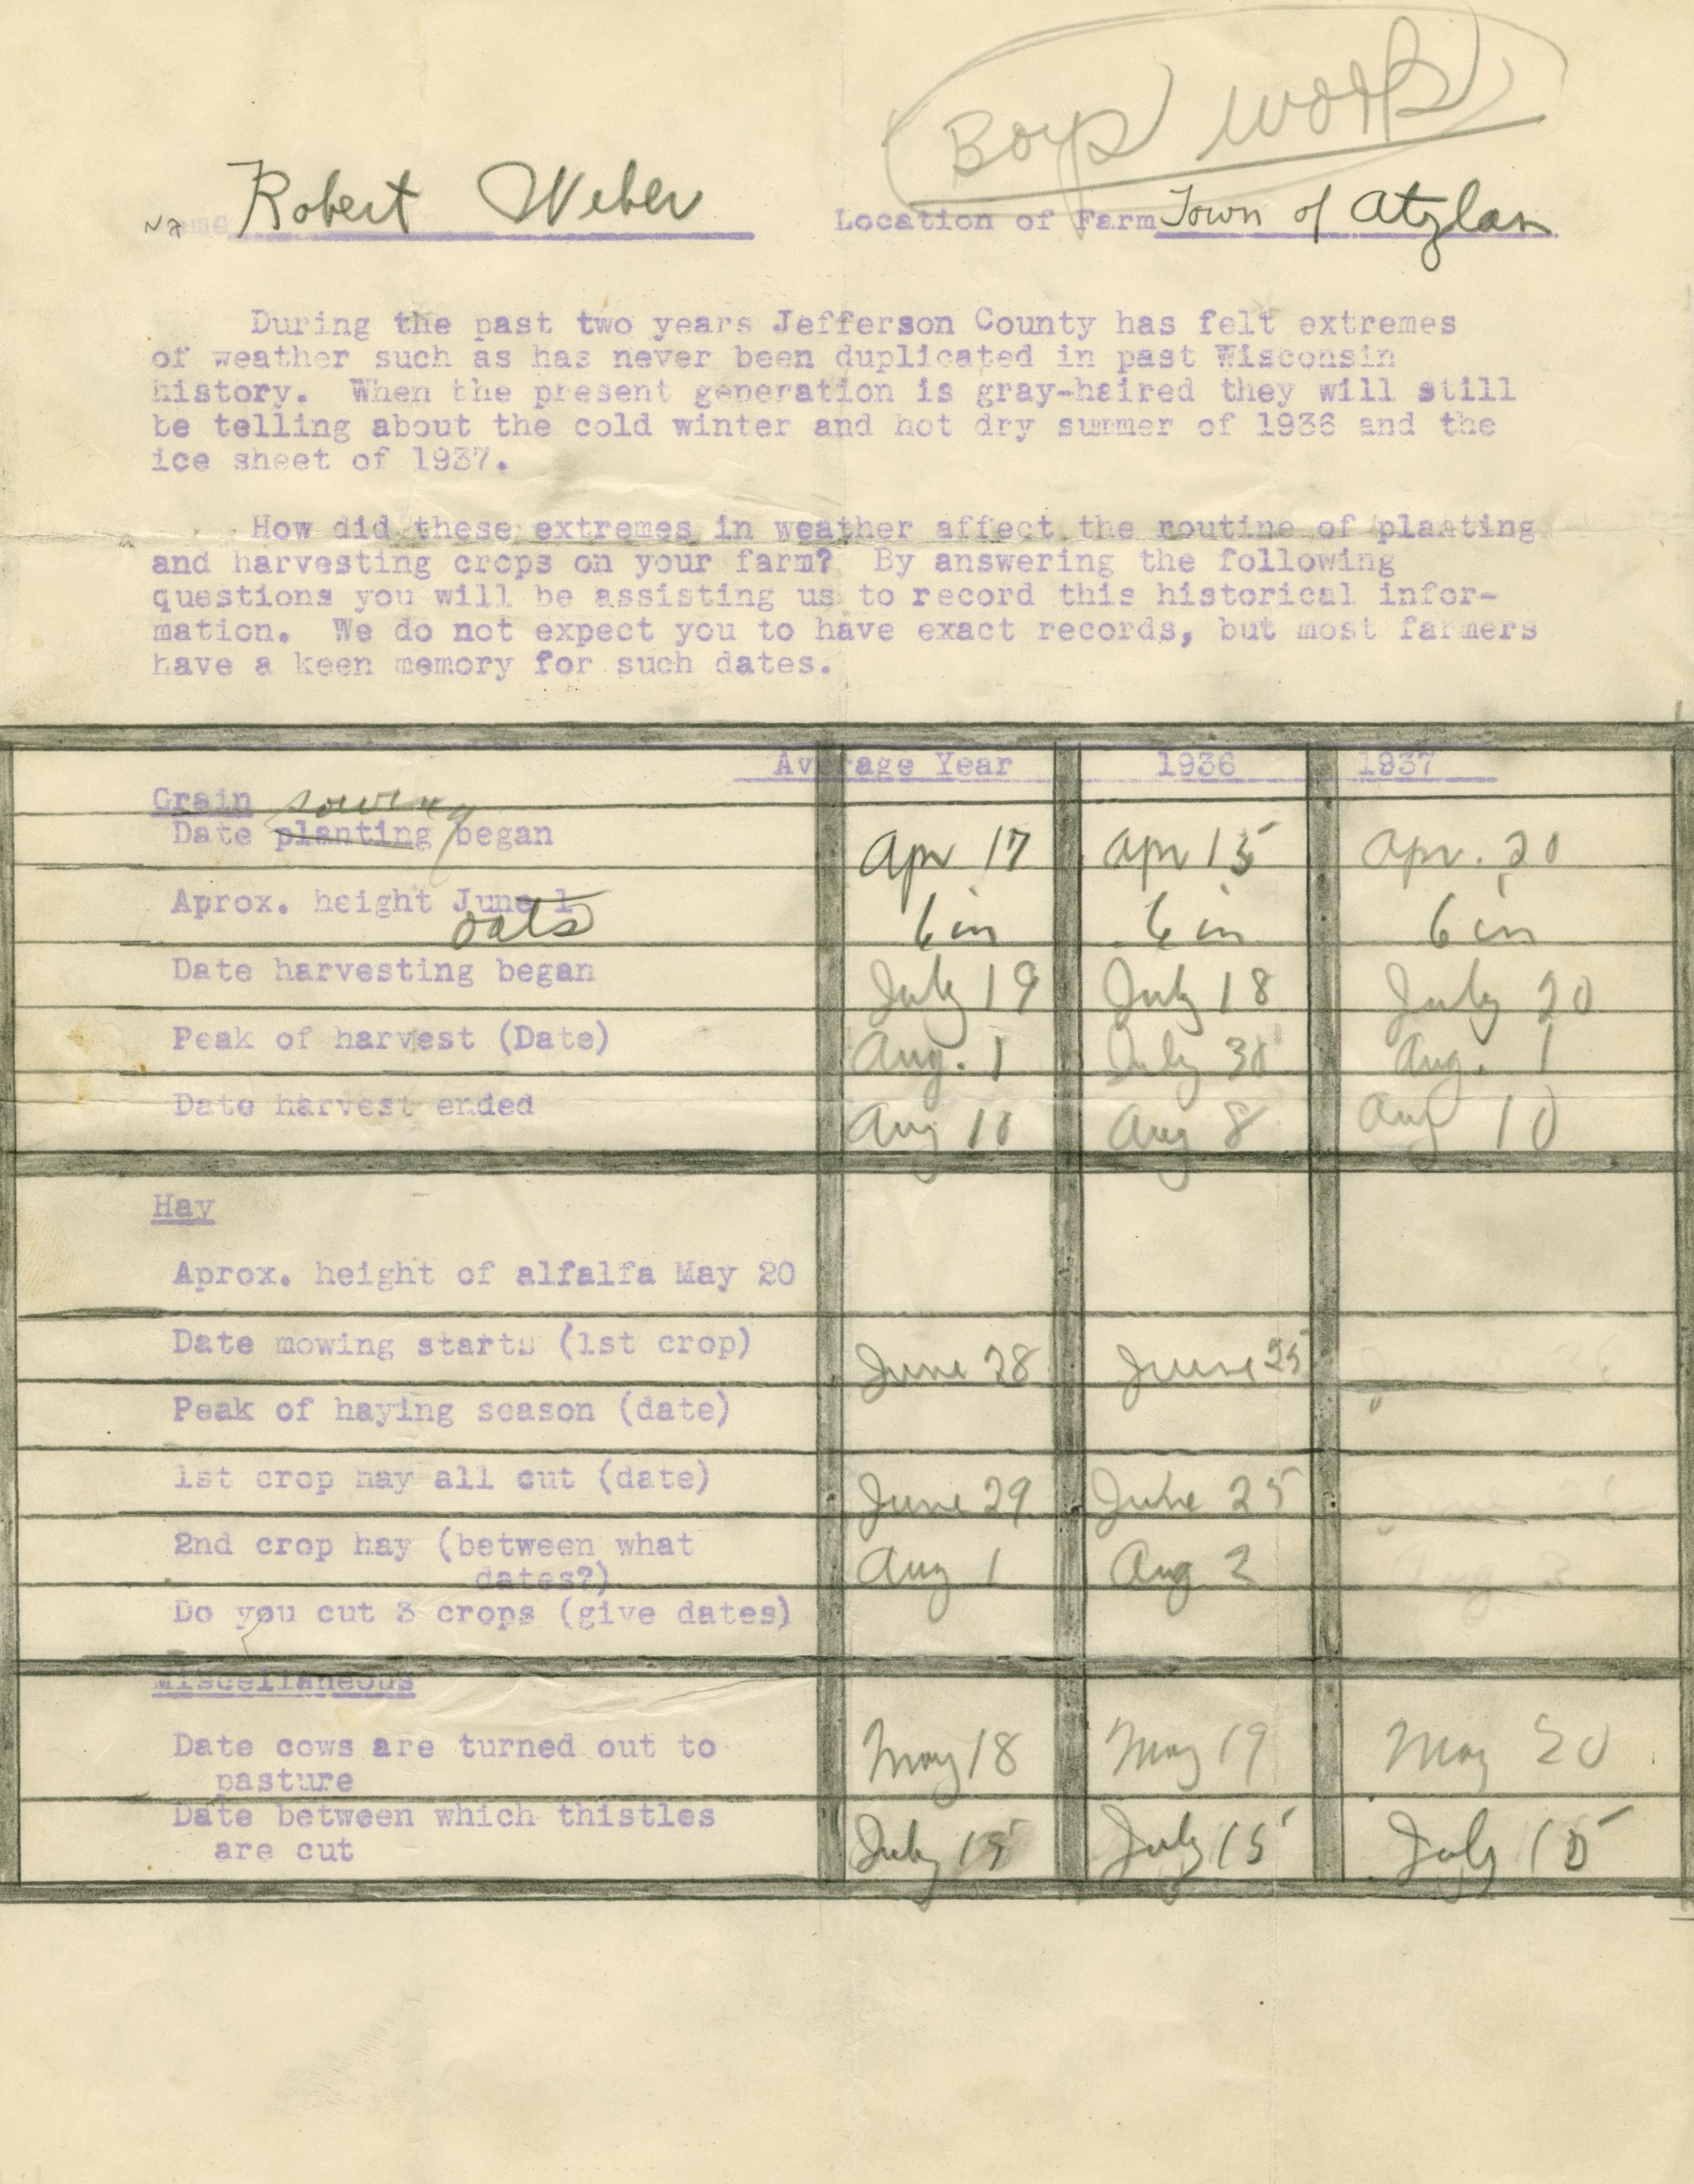 Boys work
Name Robert Weber Location of Farm Town of Atzlan
During the past two years Jefferson County has felt extremes
of weather such as has never been duplicated in past Wisconsin
history. When the present generation is gray-haired they will still
be telling about the cold winter and hot dry summer of 1936 and the
ice sheet of 1937.
How did these extremes in weather affect the routine of planting
and harvesting crops on your farm? By answering the following
questions you will be assisting us to record this historical infor-
mation. We do not expect you to have exact records, but most farmers
have a keen memory for such dates.
Average Year 1936 1937
Grain sowing
Date planting began Apr 17 Apr 15 Apr. 20
Aprox. height June 1 oats 6 in 6 in 6 in
Date harvesting began July 19 July 18 July 20
Peak of harvest (Date) Aug. 1 July 30 Aug. 1
Date harvest ended Aug 10 Aug 8 Aug 10
Hay
Aprox. height of alfalfa May 20
Date mowing starts (1st crop) June 28 June 25
Peak of haying season (date)
1st crop hay all cut (date) June 29 June 25
2nd crop hay (between what Aug 1 Aug 2
dates?)
Do you cut 3 crops (give dates)
Miscellaneous
Date cows are turned out to May 18 May 19 May 20
pasture
Date between which thistles
are cut July 15 July 15 July 15